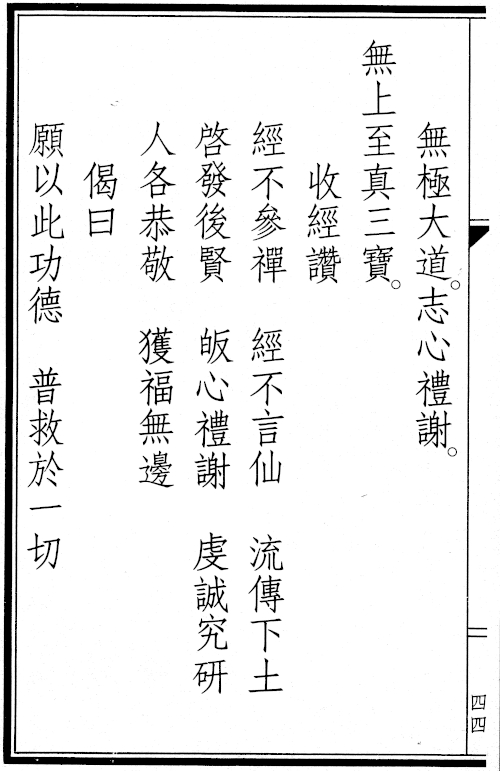 無極大道。志心禮謝。
無上至真三寶。
收經讚
經不參禪　經不言仙　流傳下土
啓發後賢　皈心禮謝　虔誠究研
人各恭敬　獲福無邊
偈曰
願以此功德　普救於一切
四四